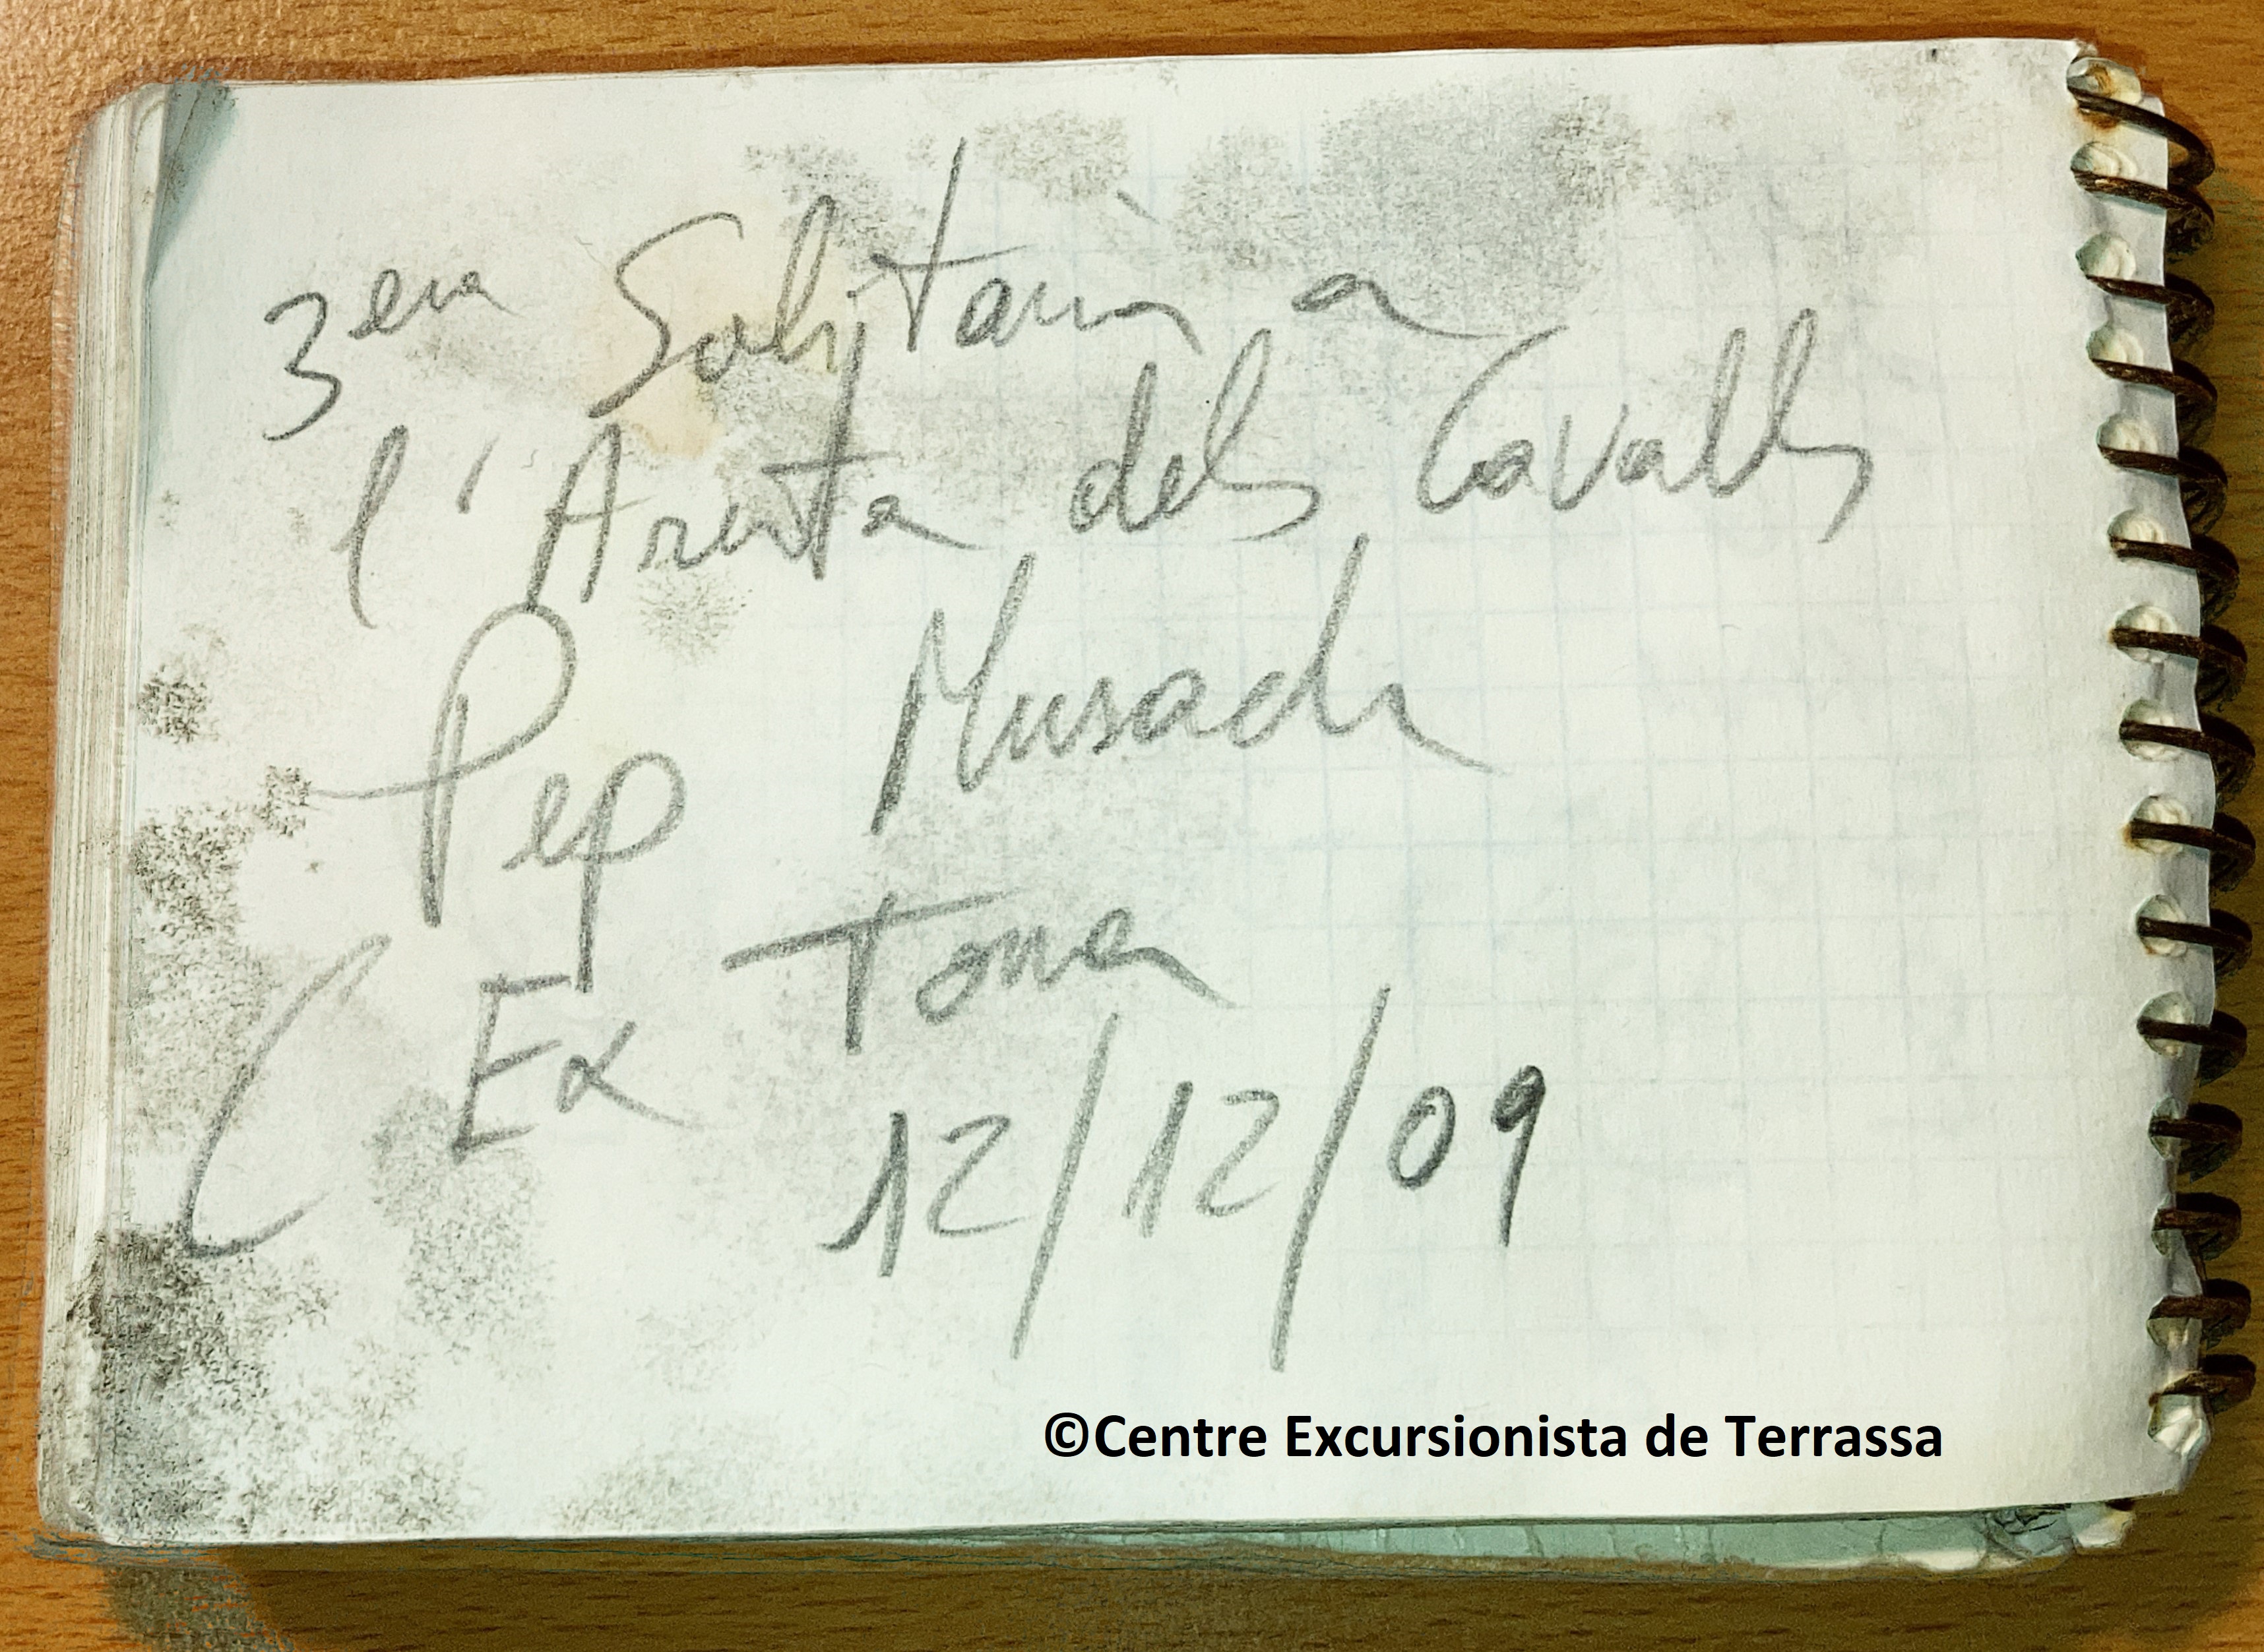 3era Solitaria a
l'Aresta dels Cavalls
Pep Musach
C Ex Tona
12/12/09
©Centre Excursionista de Terrassa